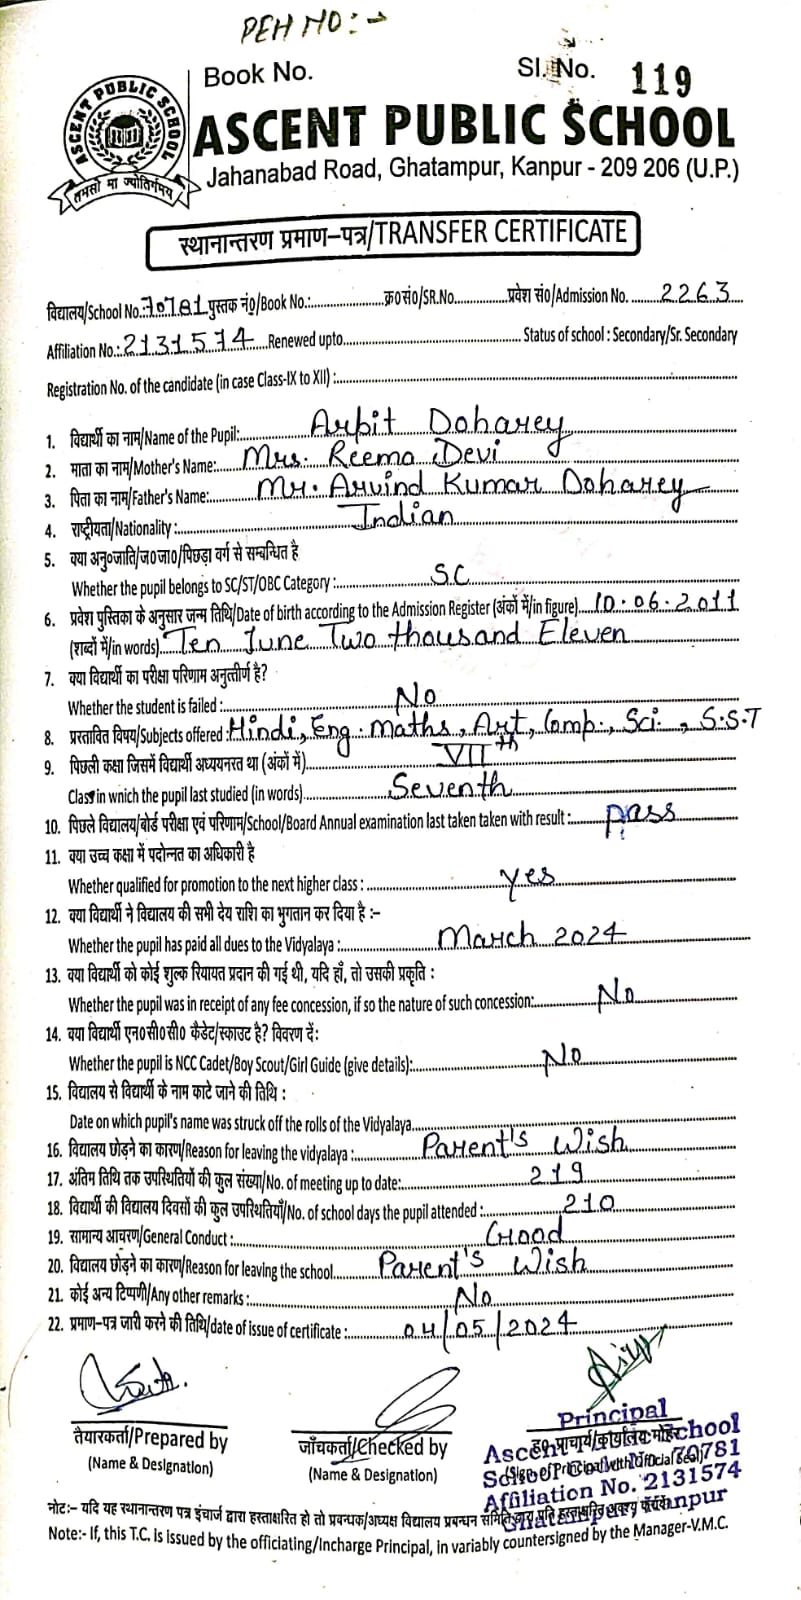 PEH NO:→
Book No.
Sl. No. 119
ASCENT PUBLIC SCHOOL
तमसो मा ज्योतिर्गमय
ASCENT PUBLIC SCHOOL
Jahanabad Road, Ghatampur, Kanpur - 209 206 (U.P.)
स्थानान्तरण प्रमाण-पत्र/TRANSFER CERTIFICATE
विद्यालय/School No.:70781 पुस्तक नं0/Book No.:.......... क्र०सं०/SR.No.......... प्रवेश सं०/Admission No. ....2263....
Affiliation No.:.2131574..Renewed upto.......... Status of school : Secondary/Sr. Secondary
Registration No. of the candidate (in case Class-IX to XII) :..........
1. विद्यार्थी का नाम/Name of the Pupil:..........Arpit Doharey
2. माता का नाम/Mother's Name:....Mrs. Reema Devi
3. पिता का नाम/Father's Name:..........Mr. Arvind Kumar Doharey
4. राष्ट्रीयता/Nationality :..........Indian
5. क्या अनु०जाति/ज०जा०/पिछड़ा वर्ग से सम्बन्धित है
Whether the pupil belongs to SC/ST/OBC Category :..........SC
6. प्रवेश पुस्तिका के अनुसार जन्म तिथि/Date of birth according to the Admission Register (अंकों में/in figure)....10.06.2011
(शब्दों में/in words)..Ten June Two thousand Eleven
7. क्या विद्यार्थी का परीक्षा परिणाम अनुत्तीर्ण है?
Whether the student is failed :..........No
8. प्रस्तावित विषय/Subjects offered :Hindi, Eng. Maths, Art, Comp., Sci., S.S.T
9. पिछली कक्षा जिसमें विद्यार्थी अध्ययनरत था (अंकों में)..........VIIth
Class in wnich the pupil last studied (in words)..........Seventh
10. पिछले विद्यालय/बोर्ड परीक्षा एवं परिणाम/School/Board Annual examination last taken taken with result :......pass
11. क्या उच्च कक्षा में पदोन्नत का अधिकारी है
Whether qualified for promotion to the next higher class :..........yes
12. क्या विद्यार्थी ने विद्यालय की सभी देय राशि का भुगतान कर दिया है :-
Whether the pupil has paid all dues to the Vidyalaya :..........March 2024
13. क्या विद्यार्थी को कोई शुल्क रियायत प्रदान की गई थी, यदि हाँ, तो उसकी प्रकृति :
Whether the pupil was in receipt of any fee concession, if so the nature of such concession:..........No
14. क्या विद्यार्थी एन०सी०सी० कैडेट/स्काउट है? विवरण दें:
Whether the pupil is NCC Cadet/Boy Scout/Girl Guide (give details):..........No
15. विद्यालय से विद्यार्थी के नाम काटे जाने की तिथि :
Date on which pupil's name was struck off the rolls of the Vidyalaya..........
16. विद्यालय छोड़ने का कारण/Reason for leaving the vidyalaya :..........Parent's Wish
17. अंतिम तिथि तक उपस्थितियों की कुल संख्या/No. of meeting up to date:..........219
18. विद्यार्थी की विद्यालय दिवसों की कुल उपस्थितियाँ/No. of school days the pupil attended :..........210
19. सामान्य आचरण/General Conduct :..........Good
20. विद्यालय छोड़ने का कारण/Reason for leaving the school..........Parent's Wish
21. कोई अन्य टिप्पणी/Any other remarks :..........No
22. प्रमाण-पत्र जारी करने की तिथि/date of issue of certificate :..........04/05/2024
तैयारकर्ता/Prepared by
(Name & Designation)
जाँचकर्ता/Checked by
(Name & Designation)
Principal
ह० प्राचार्य/कार्यालय मोहर
Ascent Public School
(Sign of Principal with Official Seal)
School Code No. 70781
Affiliation No. 2131574
Ghatampur, Kanpur
नोटः- यदि यह स्थानान्तरण पत्र इंचार्ज द्वारा हस्ताक्षरित हो तो प्रबन्धक/अध्यक्ष विद्यालय प्रबन्धन समिति द्वारा प्रति हस्ताक्षरित अवश्य
Note:- If, this T.C. is issued by the officiating/Incharge Principal, in variably countersigned by the Manager-V.M.C.